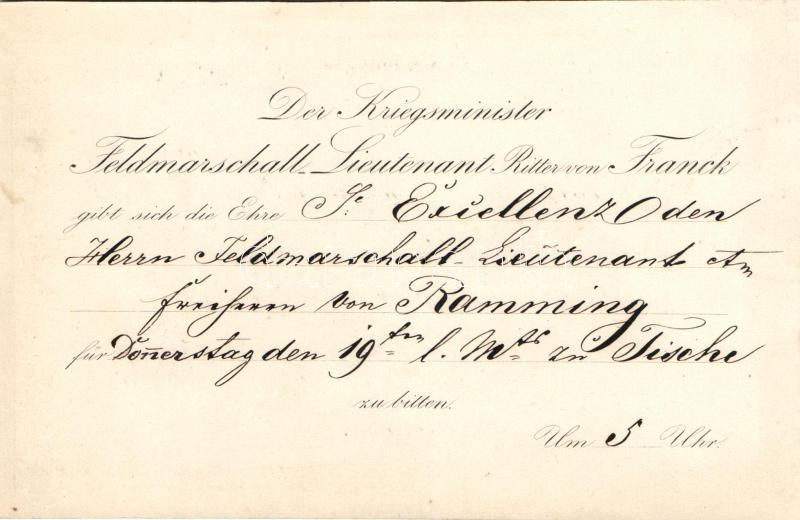 Der Kriegsminister
Feldmarschall-Lieutenant Ritter von Franck
gibt sich die Ehre Sr: Excellenz den
Herrn Feldmarschall-Lieutenant
Freiherrn von Ramming
für Donnerstag den 19ten l. Mts zu Tische
zu bitten.
Um 5 Uhr.